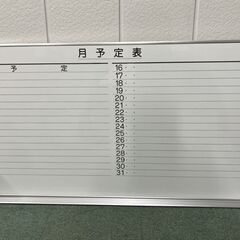 月予定表
予定
16・・
17・・
18・・
19・・
20・・
21・・
22・・
23・・
24・・
25・・
26・・
27・・
28・・
29・・
30・・
31・・